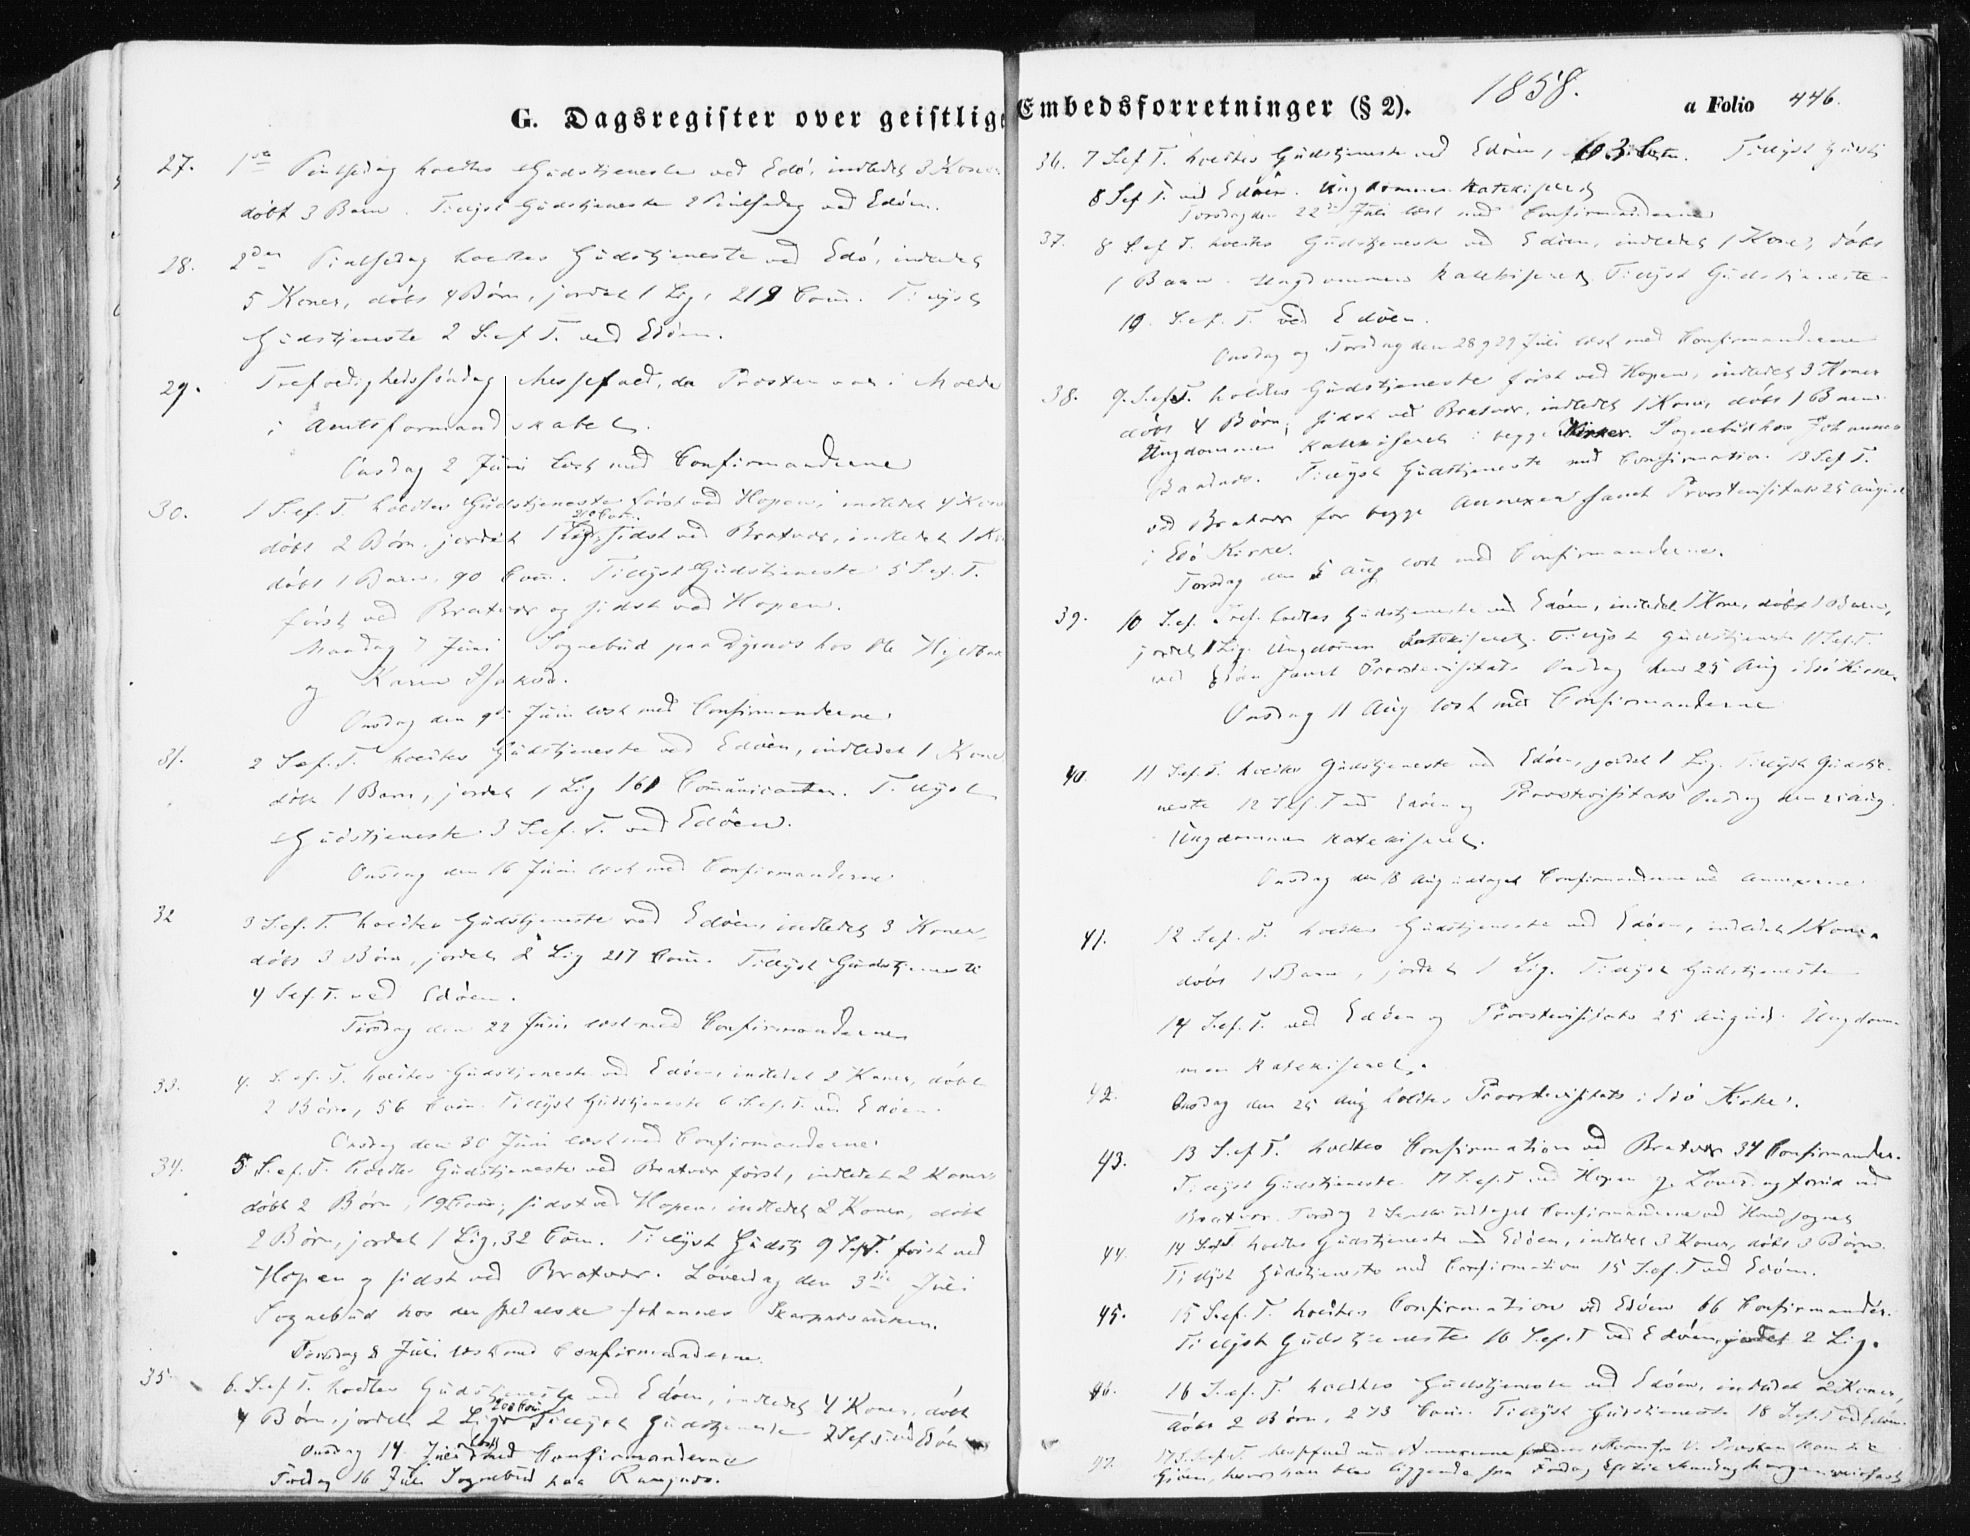 G. Dagsregister over geistlige Embedsforretninger (§ 2). 1858. a Folio 446.
27. 1ste Pintsedag holdtes Gudstjeneste ved Edö, indledet 3 Koner
döbt 3 Barn. Tillyst Gudstjeneste 2 Pintsedag ved Edöen.
28. 2den Pintsedag holdtes Gudstjeneste ved Edö, indledet
5 Koner, döbt 4 Börn, jordet 1 Lig, 219 Com. Tillyst
Gudstjeneste 2 S. ef T. ved Edöen.
29. Trefoldighedssöndag Messefald, da Provsten var i Molde
i Amtsformandskabet.
Onsdag 2 Juni læst med Confirmanderne
30. 1 S. ef. T. holdtes Gudstjeneste först ved Hopen, indledet 4 Kon
döbt 2 Börn, jordet 1 Lig, sidst ved Bratvær, indledet 1 Ko
döbt 1 Barn, 90 Com. Tillyst Gudstjeneste 5 S. ef. T.
först ved Bratvær og sidst ved Hopen.
Mandag 7 Juni Sognebud paa hos Ole
og Karen
Onsdag den 9de Juni læst med Confirmanderne
31. 2 S. ef. T. holdtes Gudstjeneste ved Edöen, indledet 1 Kone
döbt 1 Barn, jordet 1 Lig 161 Communicanter. Tillyst
Gudstjeneste 3 S. ef. T. ved Edöen.
Onsdag den 16 Juni læst med Confirmanderne
32 3 S. ef. T. holdtes Gudstjeneste ved Edöen, indledet 3 Koner,
döbt 3 Börn, jordet 2 Lig 217 Com. Tillyst Gudstjeneste
4 S. ef. T. ved Edöen.
Tirsdag den 22 Juni læst med Confirmanderne
33. 4. S. ef. T. holdtes Gudstjeneste ved Edöen, indledet 2 Koner, döbt
2 Börn, 56 Com. Tillyst Gudstjeneste 6 S. ef. T. ved Edöen.
Onsdag den 30 Juni læst med Confirmanderne
34. 5 S. ef. T. holdtes Gudstjeneste ved Bratvær först, indledet 2 Koner
döbt 2 Börn, 19 Com; sidst ved Hopen, indledet 2 Koner, döbt
2 Börn, jordet 1 Lig, 32 Com. Tillyst Gudstj 9 S. ef T. först ved
Hopen og sidst ved Bratvær. Löverdag den 3die Juli
Sognebud hos den spedalske Johannes
Torsdag 8 Juli læst med Confirmanderne.
35 6. S. ef T. holdtes Gudstjeneste ved Edöen, indledet 4 Koner, döbt
4 Börn, jordet 2 Lig, Tillyst Gudstjeneste 7 S ef T. ved Edöen
Onsdag 14 Juli læst med Confirmanderne
Fredag 16 Juli Sognebud paa
36. 7 S. ef T. holdtes Gudstjeneste ved Edöen, Tillyst Gudstj
8 S ef T. ved Edöen. Ungdommen Katekiseret
Torsdag den 22 Juli læst med Confirmanderne
37. 8 S. ef T. holdtes Gudstjeneste ved Edöen, indledet 1 Kone, döbt
1 Barn. Ungdommen Katekiseret, Tillyst Gudstjeneste
10. S. ef. T. ved Edöen.
Onsdag og Torsdag den 28 og 29 Juli læst med Confirmanderne
38. 9. S. ef T. holdtes Gudstjeneste först ved Hopen, indledet 3 Koner
döbt 4 Börn; sidst ved Bratvær, indledet 1 Kone, döbt 1 Barn.
Ungdommen Katekiseret i begge Kirker. Sognebud hos Johannes
Tillyst Gudstjeneste med Confirmation 13 S ef T.
ved Bratvær for begge Annexer samt Provstevisitats 25 August
i Edö Kirke.
Torsdag den 5 Aug læst med Confirmanderne.
39. 10 S. ef. Tref. holdtes Gudstjeneste ved Edöen, indledet 1 Kone, döbt 1 Barn,
jordet 1 Lig. Ungdommen Katekiseret. Tillyst Gudstjeneste 11 S. ef T.
ved Edöen samt Provstevisitats Onsdag den 25 Aug i Edö Kirke.
Onsdag 11 Aug læst med Confirmanderne
40 11 S. ef. T. holdtes Gudstjeneste ved Edöen, jordet 1 Lig. Tillyst Gudstje-
neste 12 S. ef T ved Edöen og Provstevisitats Onsdag den 25 Aug.
Ungdommen Katekiseret.
Onsdag den 18 Aug udtaget Confirmanderne ved Annexerne
41. 12 S. ef. T. holdtes Gudstjeneste ved Edöen, indledet 1 Kone,
döbt 1 Barn, jordet 1 Lig. Tillyst Gudstjeneste
14 S. ef. T. ved Edöen og Provstevisitats 25 August. Ungdom-
men Katekiseret.
42. Onsdag den 25 Aug holdtes Provstevisitats i Edö Kirke.
43. 13 S. ef T. holdtes Confirmation ved Bratvær 34 Confirmander.
Tillyst Gudstjeneste 17 S. ef. T ved Hopen og Löverdag forud ved
Bratvær. Torsdag 2 Septbr udtaget Confirmanderne ved Hovedsognet
44. 14 S ef T. holdtes Gudstjeneste ved Edöen, indledet 3 Koner, döbt 3 Börn.
Tillyst Gudstjeneste med Confirmation 15 S. ef. T ved Edöen.
45. 15 S. ef. T. holdtes Confirmation ved Edöen 66 Confirmander.
Tillyst Gudstjeneste 16 S. ef. T ved Edöen, jordet 2 Lig.
46. 16 S. ef. T. holdtes Gudstjeneste ved Edöen, indledet 2 Koner,
döbt 2 Börn, 273 Com. Tillyst Gudstjeneste 18 S. ef. T ved Edöen.
47. 17 S. ef T. Messefald ved Annexerne Provsten kom til
hvor han blev liggende fra Fredag